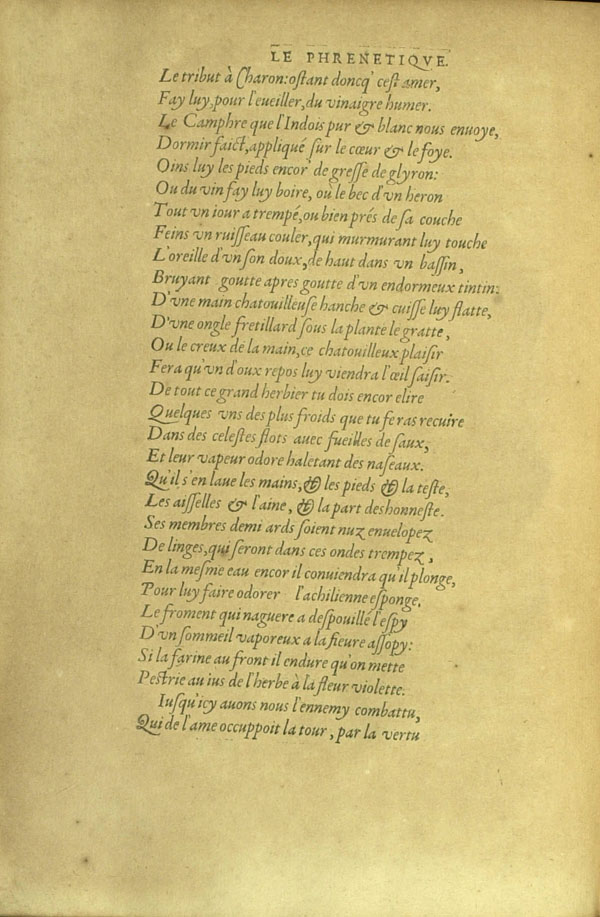 LE PHRENETIQVE.
Le tribut à Charon: oſtant doncq' ceſt amer,
Fay luy, pour l'eueiller, du vinaigre humer.
Le Camphre que l'Indois pur & blanc nous enuoye,
Dormir faict, appliqué ſur le cœur & le foye.
Oins luy les pieds encor' de greſſe de glyron:
Ou du vin fay luy boire, ou le bec d'vn heron
Tout vn iour a trempé, ou bien prés de ſa couche
Feins vn ruiſſeau couler, qui murmurant luy touche
L'oreille d'vn ſon doux, de haut dans vn baſſin,
Bruyant goutte apres goutte d'vn endormeux tintin:
D'vne main chatouilleuſe hanche & cuiſſe luy flatte,
D'vne ongle fretillard ſous la plante le gratte,
Ou le creux de la main, ce chatouilleux plaiſir
Fera qu'vn d'oux repos luy viendra l'œil ſaiſir.
De tout ce grand herbier tu dois encor elire
Quelques vns des plus froids que tu feras recuire
Dans des celeſtes flots auec fueilles de ſaux,
Et leur vapeur odore haletant des naſeaux.
Qu'il s'en laue les mains, & les pieds & la teſte,
Les aiſſelles & l'aine, & la part deshonneſte.
Ses membres demi ards ſoient nuz enuelopez
De linges, qui ſeront dans ces ondes trempez,
En la meſme eau encor il conuiendra qu'il plonge,
Pour luy faire odorer l'achilienne eſponge.
Le froment qui naguere a deſpouillé l'eſpy
D'vn ſommeil vaporeux a la fieure aſſopy:
Si la farine au front il endure qu'on mette
Peſtrie au ius de l'herbe à la fleur violette.
Iuſqu'icy auons nous l'ennemy combattu,
Qui de l'ame occuppoit la tour, par la vertu